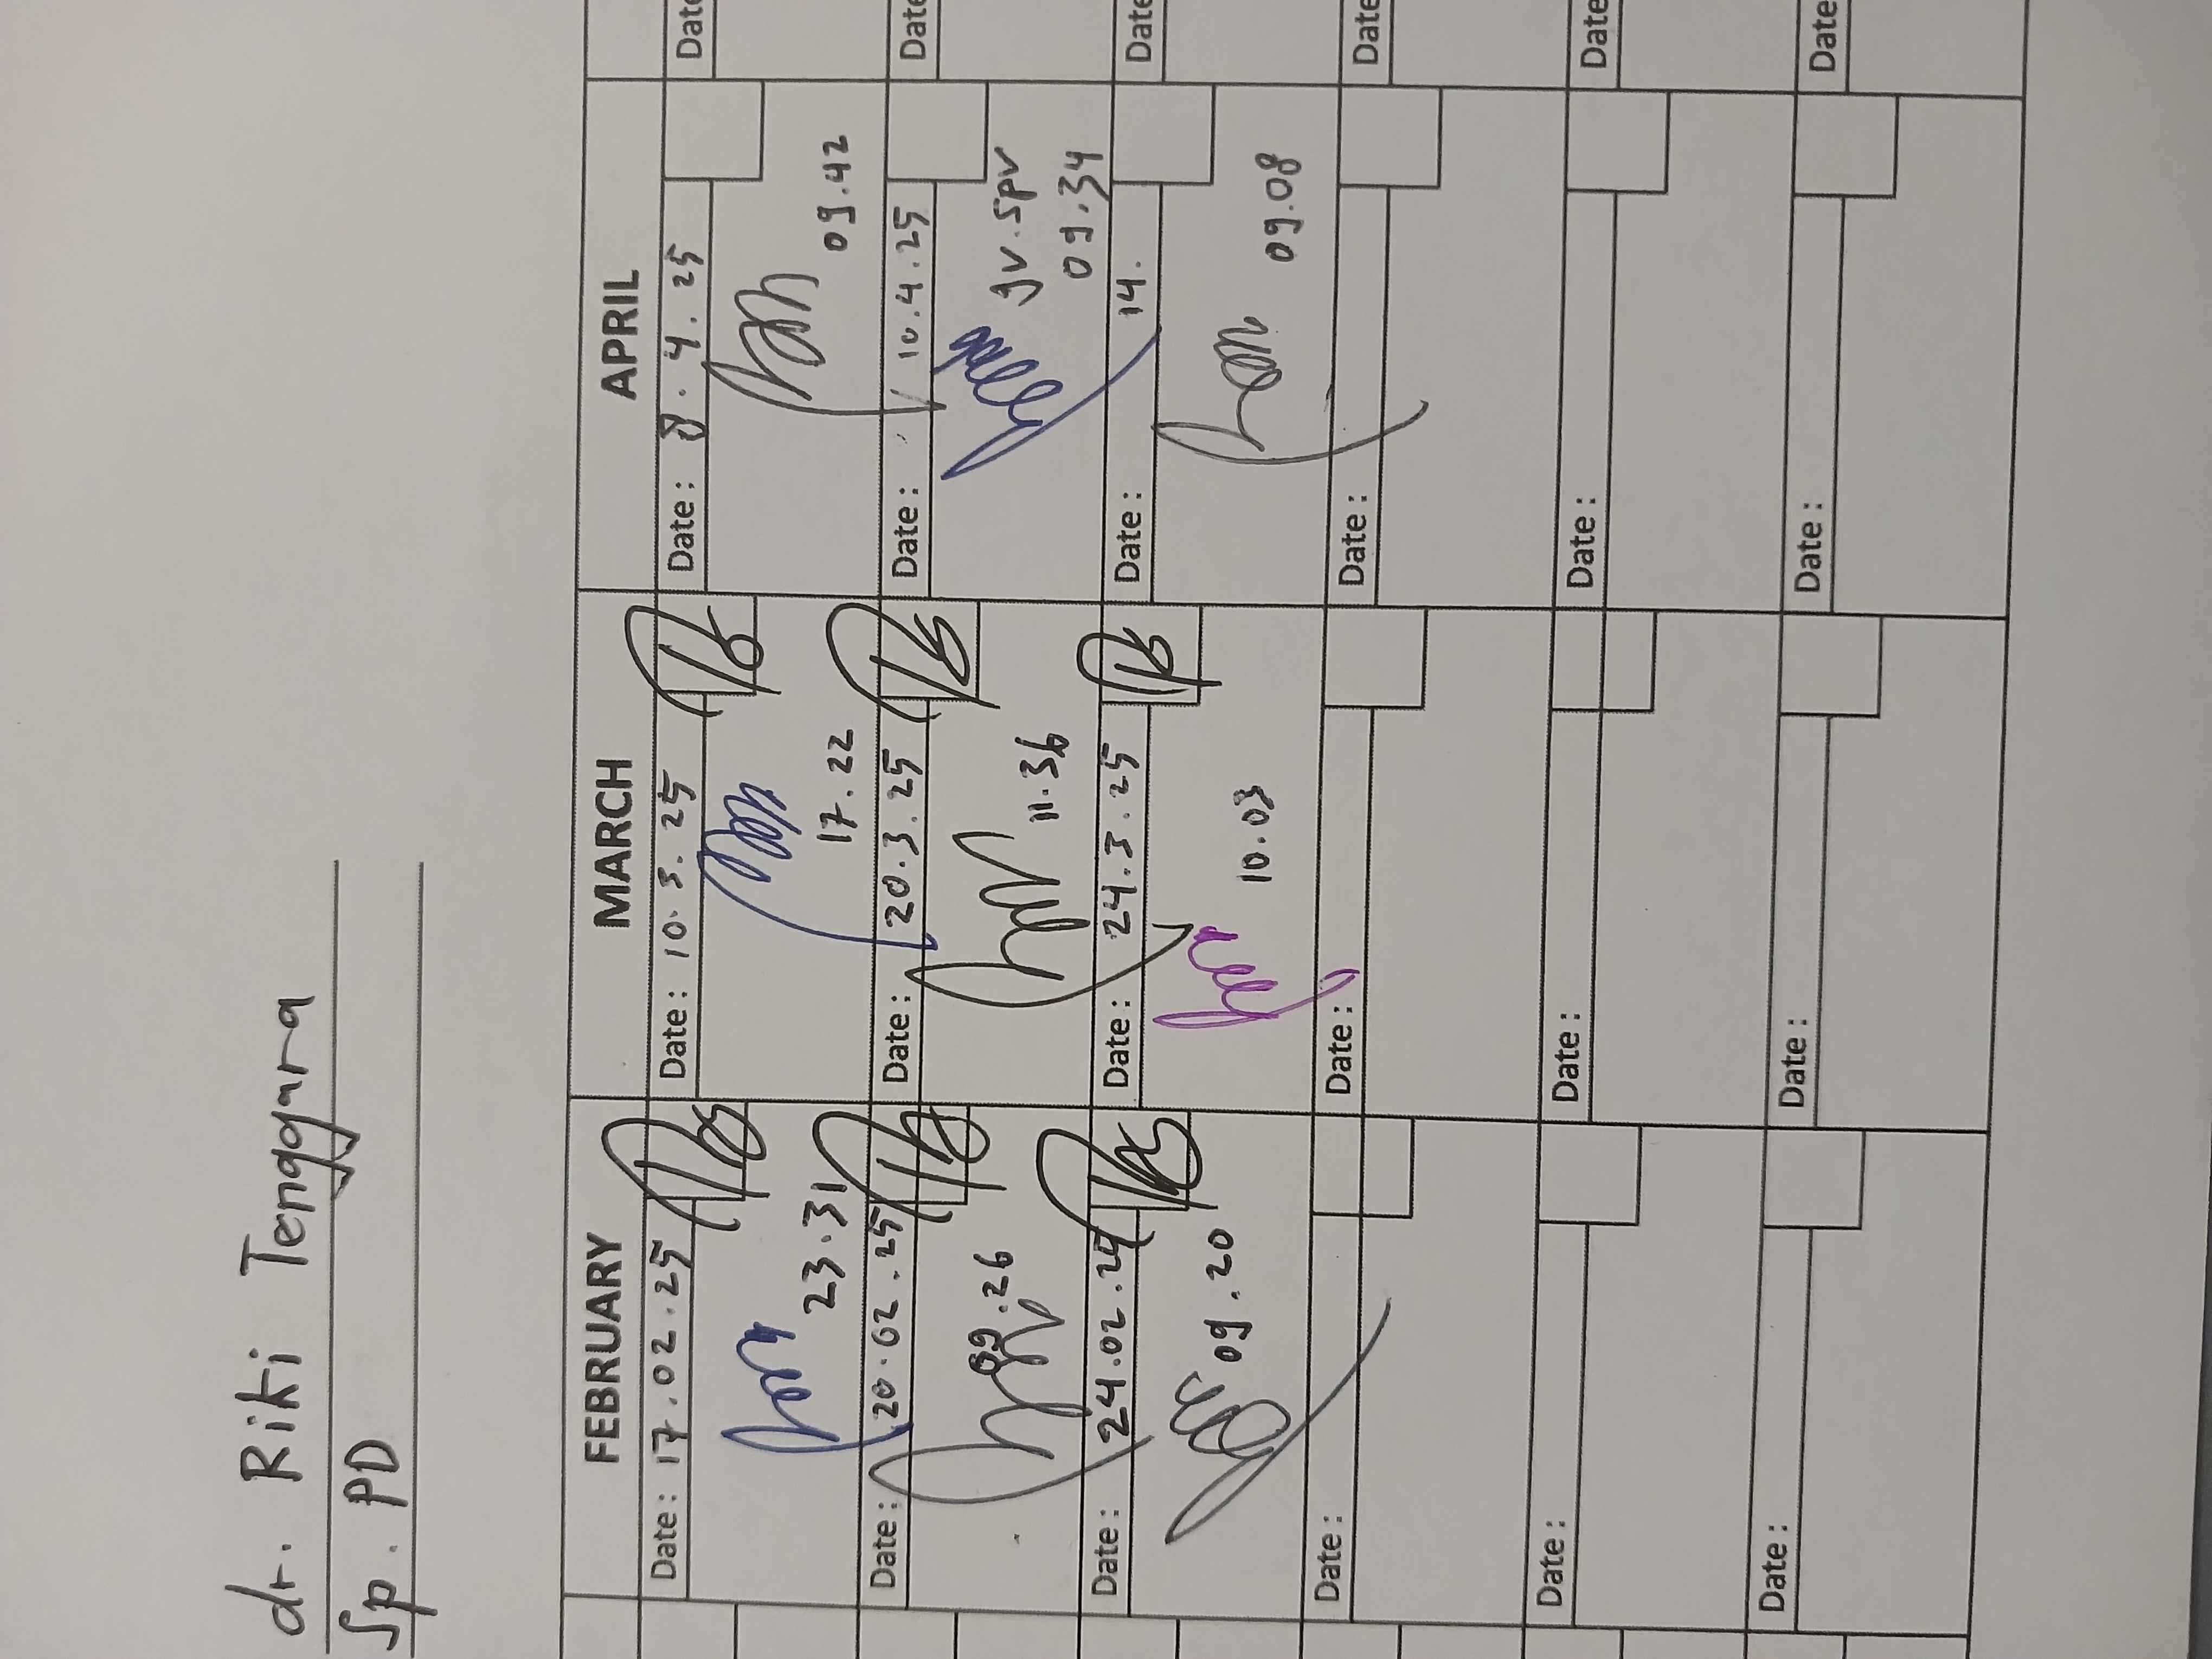 dr. Riki Tenggara
Sp. PD
FEBRUARY MARCH APRIL
Date : 17.02.25 Date : 10.3.25 Date : 8.4.25 Date
23.31 17.22 09.42
Date : 20.02.25 Date : 20.3.25 Date : 10.4.25 Date
09.26 11.36 gv.spv
09.34
Date : 24.02.25 Date : 24.3.25 Date : 14. Date
09.20 10.03 09.08
Date : Date : Date : Date
Date : Date : Date : Date
Date : Date : Date : Date